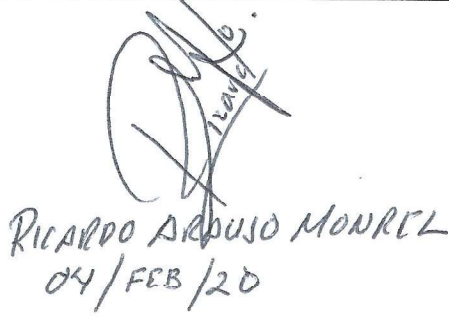 RICARDO ARAUJO MONREL
04/FEB/20